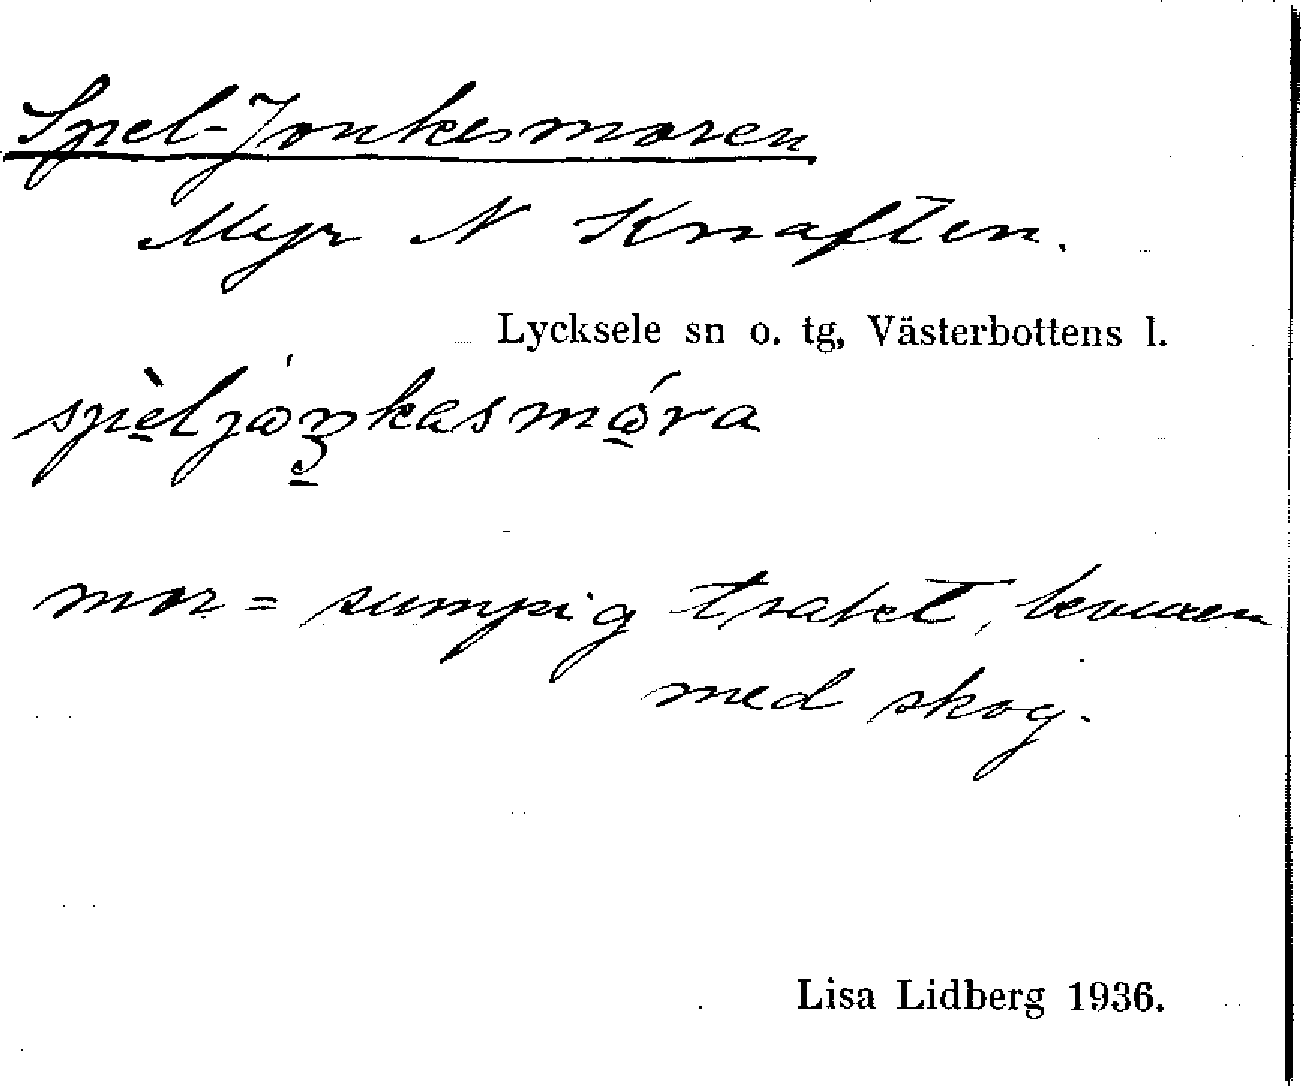 Spel-Jonkesmoren
Myr N Knaften.
Lycksele sn o. tg, Västerbottens l.
spèljåŋkasmåra
mor = sumpig trakt, bevuxen
med skog.
Lisa Lidberg 1936.